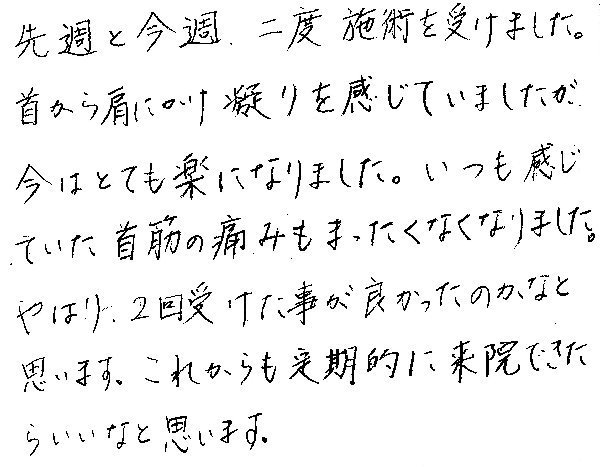 先週と今週、二度施術を受けました。
首から肩にかけ凝りを感じていましたが
今はとても楽になりました。いつも感じ
ていた首筋の痛みもまったくなくなりました。
やはり、2回受けた事が良かったのかなと
思います。これからも定期的に来院できた
らいいなと思います。